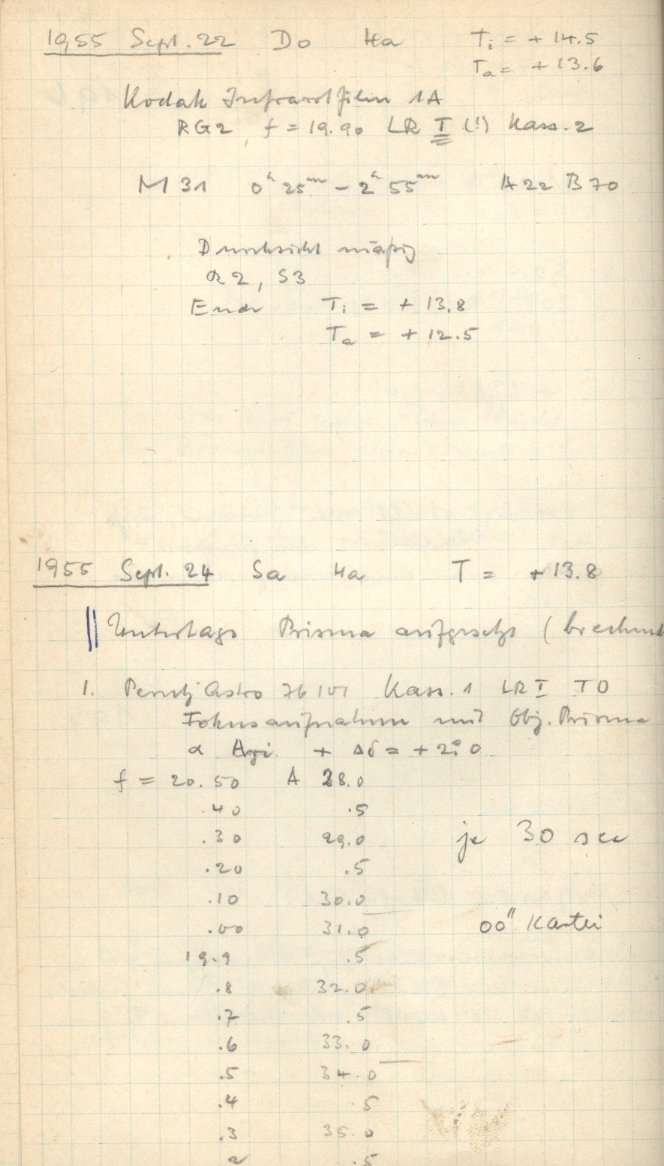 1955 Sept. 22 Do Ha Ti = + 14.5
Ta = + 13.6
Kodak Infrarotfilm 1A
RG2, f = 19.90 LR I (!) Kass. 2
M 31 0h 25m – 2h 55m A 22 B 70
Durchsicht mäßig
R2, S3
Ende Ti = + 13.8
Ta = + 12.5
1955 Sept. 24 Sa Ha T = + 13.8
|| Untertags Prisma aufgesetzt (brechend
1. Perutz Astro 76101 Kass. 1 LR I TO
Fokusaufnahmen mit Obj. Prisma
α Aqi. + Δδ = + 2°.0
f = 20.50 A 28.0
.40 .5
.30 29.0 je 30 sec
.20 .5
.10 30.0
.00 31.0 00" Kartei
19.9 .5
.8 32.0
.7 .5
.6 33.0
.5 34.0
.4 .5
.3 35.0
2 .5